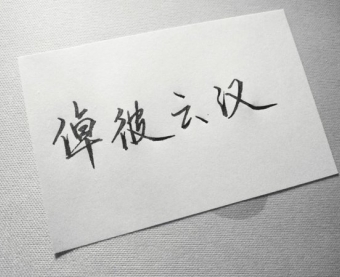 倬彼云汉